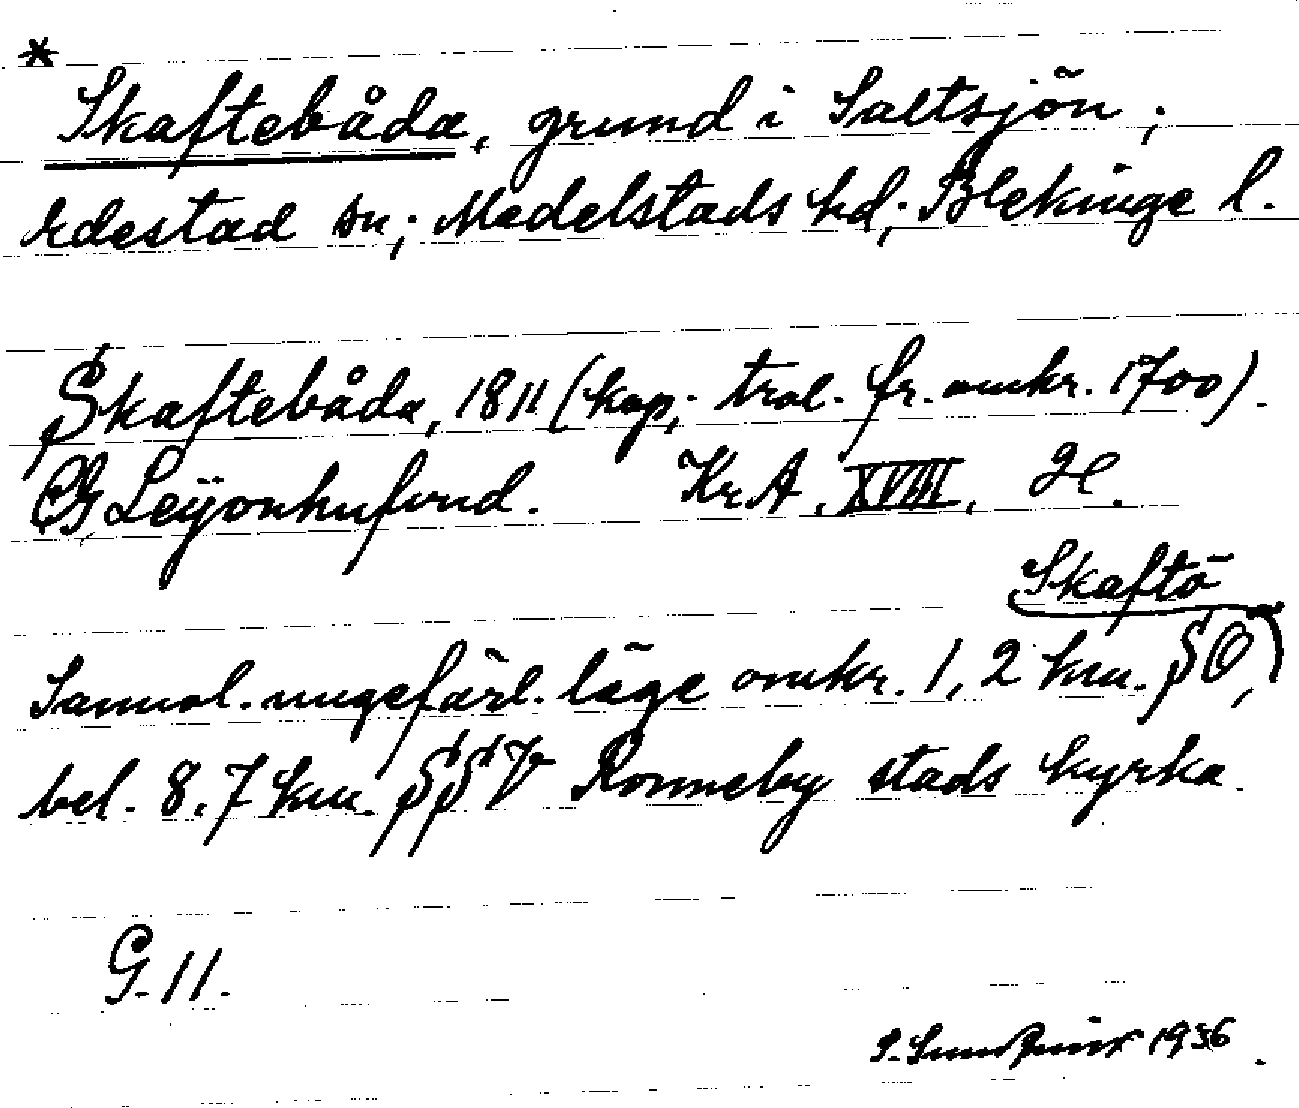 *
Skaftebåda, grund i Saltsjön;
Edestad sn; Medelstads hd; Blekinge l.
Skaftebåda, 1811 (kop; trol. fr. omkr. 1700).
CG Leÿonhufvud. Kr A. XVIII. 2 l.
Skaftö
Sannol. ungefärl. läge omkr. 1,2 km. SO,
bel. 8,7 km. SSV Ronneby stads kyrka.
G. 11.
1936